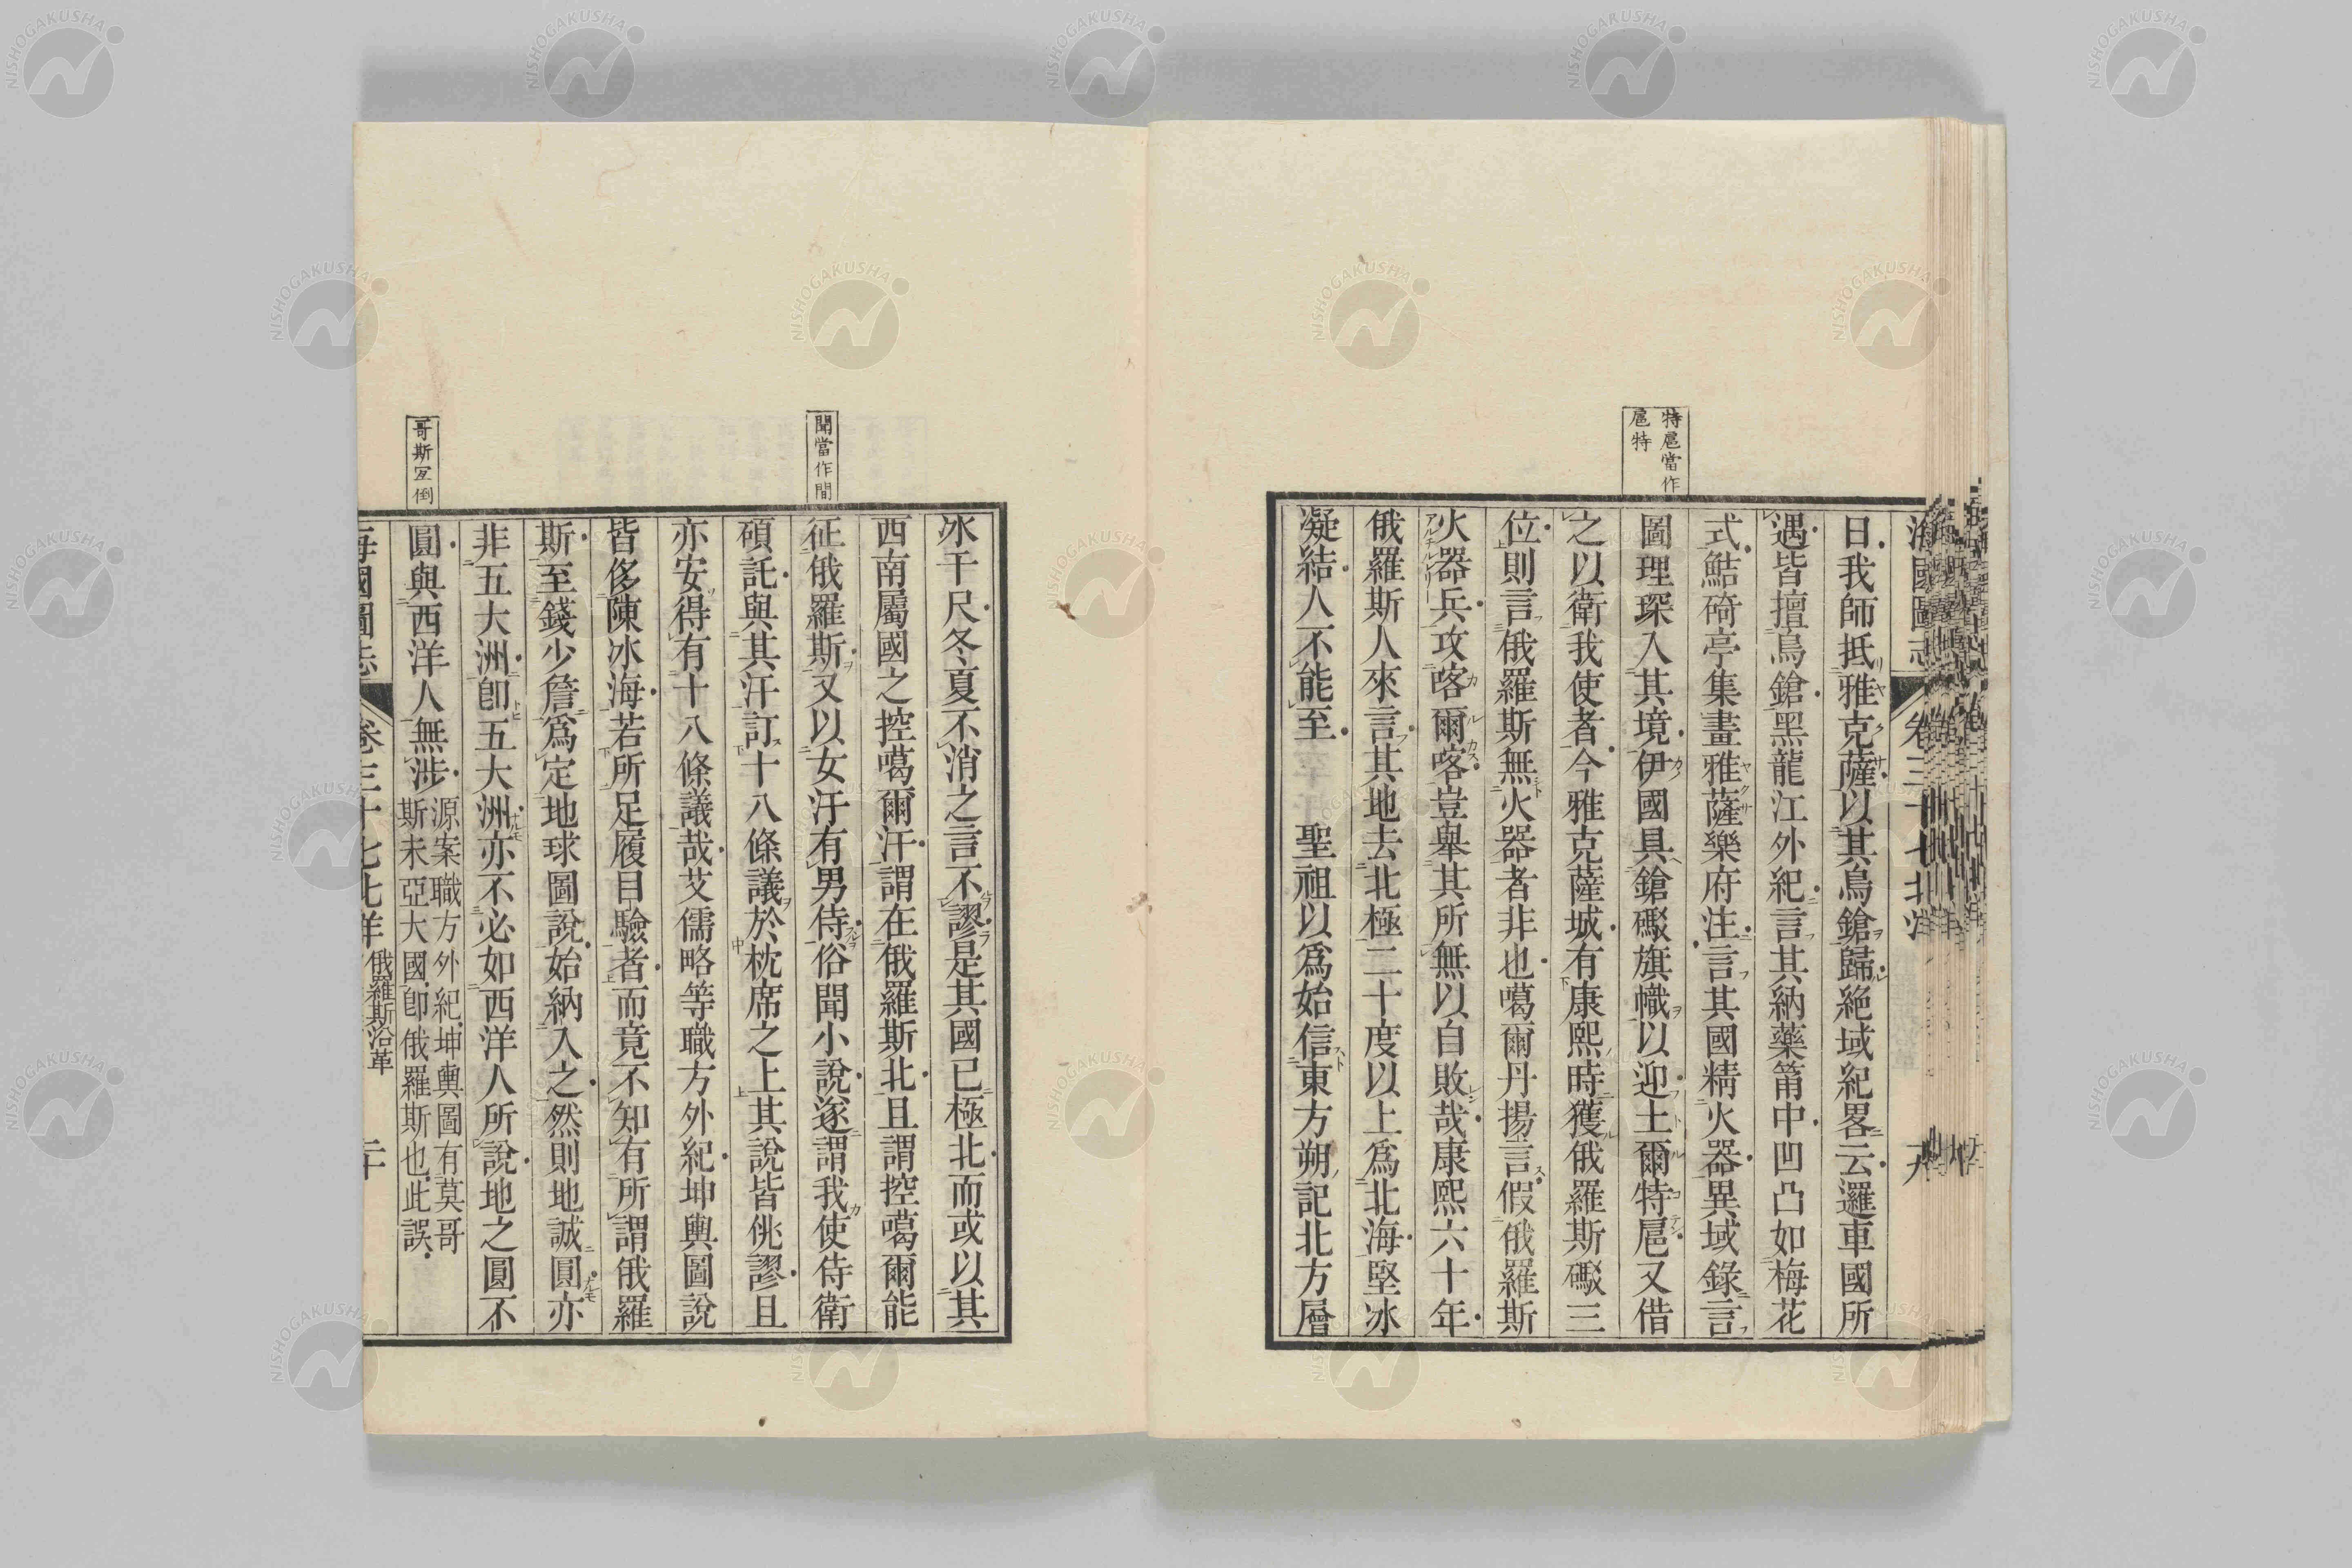 特扈當作
扈特
海國圖志 卷三十七 北洋
日我師抵雅克薩以其鳥鎗歸絕域紀畧云邏車國所
遇皆擅鳥鎗黑龍江外紀言其納藥筩中凹凸如梅花
式鮚碕亭集畫雅薩樂府注言其國精火器異域錄言
圖理琛入其境伊國具鎗礮旗幟以迎土爾特扈又借
之以衛我使者今雅克薩城有康熙時獲俄羅斯礮三
位則言俄羅斯無火器者非也噶爾丹揚言假俄羅斯
火器兵攻喀爾喀豈舉其所無以自敗哉康熙六十年
俄羅斯人來言其地去北極二十度以上爲北海堅冰
凝結人不能至 聖祖以爲始信東方朔記北方層
聞當作間
哥斯互倒
冰千尺冬夏不消之言不謬是其國已極北而或以其
西南屬國之控噶爾汗謂在俄羅斯北且謂控噶爾能
征俄羅斯又以女汗有男侍俗聞小說遂謂我使侍衛
碩託與其汗訂十八條議於枕席之上其說皆佻謬且
亦安得有十八條議哉艾儒略等職方外紀坤輿圖說
皆侈陳冰海若所足履目驗者而竟不知有所謂俄羅
斯至錢少詹爲定地球圖說始納入之然則地誠圓亦
非五大洲卽五大洲亦不必如西洋人所說地之圓不
圓與西洋人無涉源案職方外紀坤輿圖有莫哥
斯未亞大國卽俄羅斯也此誤
海國圖志 卷三十七 北洋 俄羅斯沿革 二十
NISHOGAKUSHA